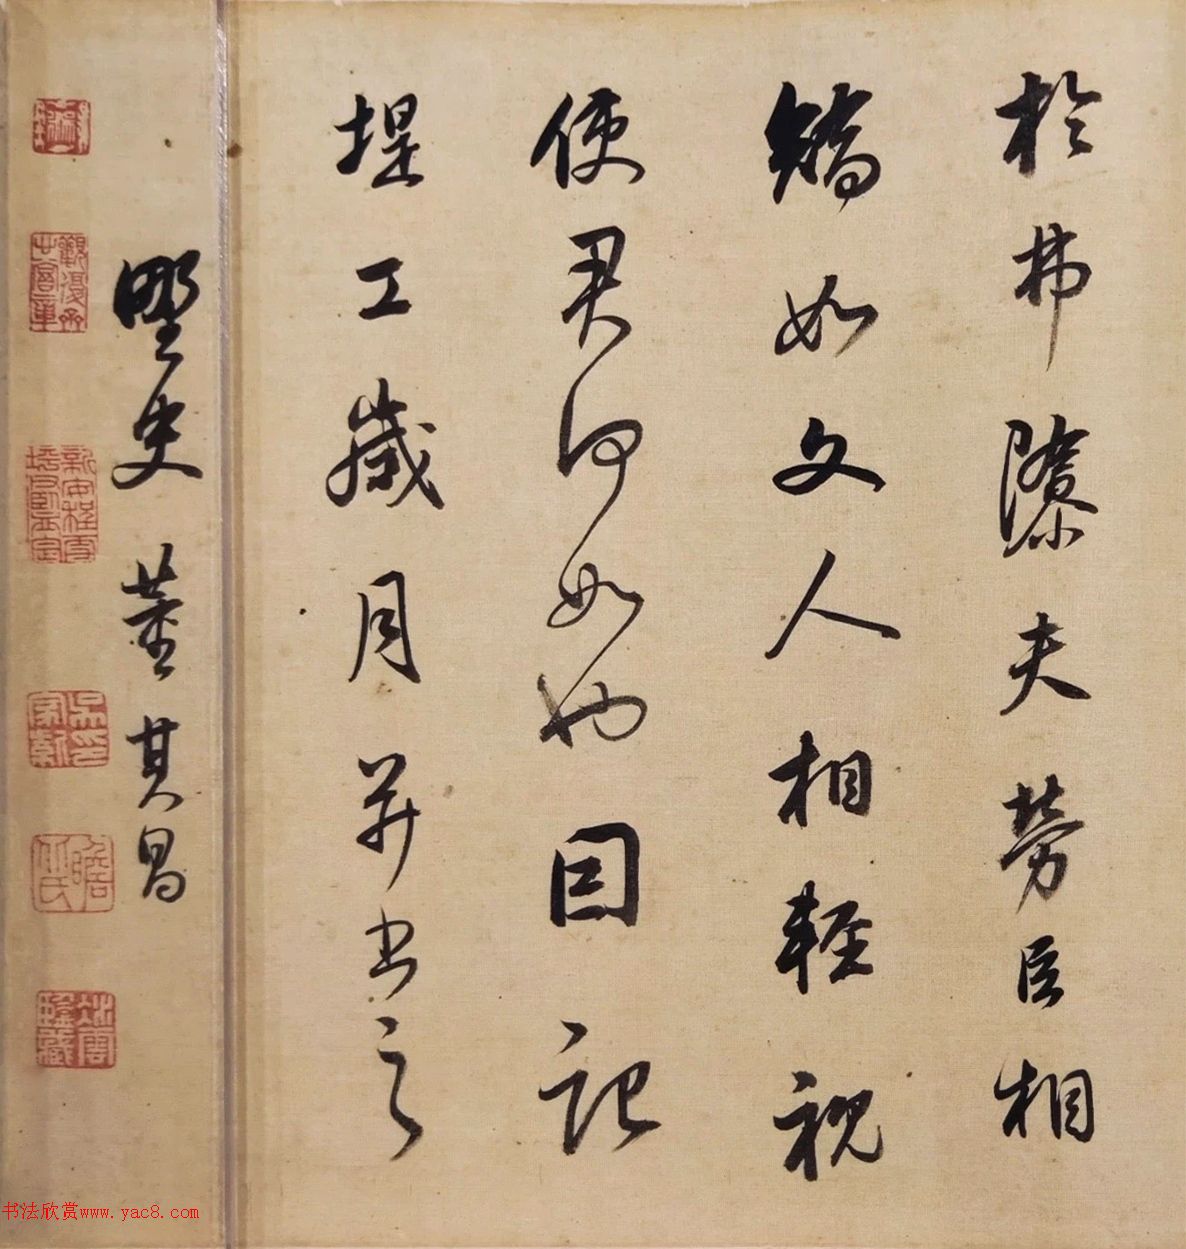 於弗隙夫勞臣相
矯如文人相輕視
使君何如也因記
堤工歲月并書之
野史 董其昌
书法欣赏www.yac8.com